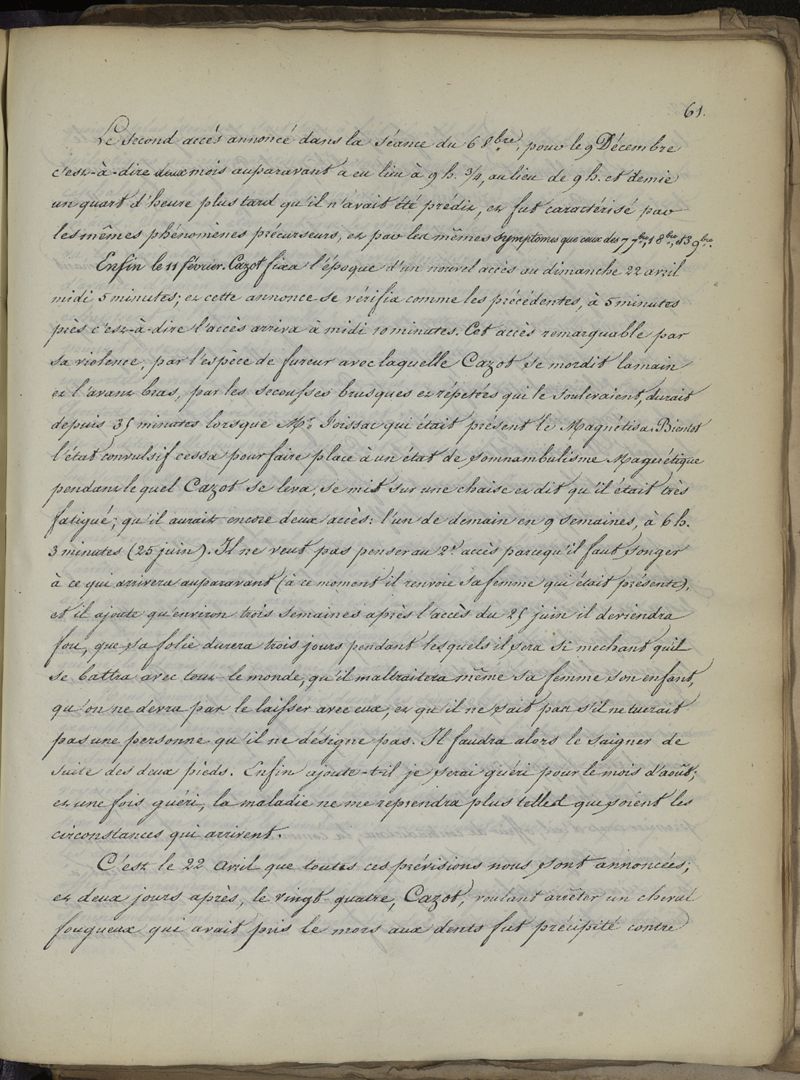 61.
Le second accès annoncé dans la séance du 6 8bre, pour le 9 Décembre
c'est-à-dire deux mois auparavant a eu lieu à 9 h. 3/4, au lieu de 9 h. et demie
un quart d'heure plus tard qu'il n'avait été prédit, et fut caractérisé par
les mêmes phénomènes précurseurs, et par les mêmes symptomes que ceux des 7 7bre, 1 8bre, 13 9bre.
Enfin le 11 février. Cazot fixa l'époque d'un nouvel accès au dimanche 22 avril
midi 5 minutes; et cette annonce se vérifia comme les précédentes, à 5 minutes
près c'est-à-dire l'accès arriva à midi 10 minutes. Cet accès remarquable par
sa violence, par l'espèce de fureur avec laquelle Cazot se mordit la main
et l'avant bras, par les secousses brusques et répetées qui le soulevaient, durait
depuis 35 minutes lorsque Mr. Foissac qui était présent le Magnétisa. Bientot
l'état convulsif cessa pour faire place à un état de somnambulisme Magnétique
pendant lequel Cazot se leva, se mit sur une chaise et dit qu'il était très
fatigué; qu'il aurait encore deux accès: l'un de demain en 9 semaines, à 6 h.
3 minutes (25 juin). Il ne veut pas penser au 2d accès parcequ'il faut songer
à ce qui arrivera auparavant (à ce moment il renvoie sa femme qui était présente),
et il ajoute qu'environ trois semaines après l'accès du 25 juin il deviendra
fou, que sa folie durera trois jours pendant lesquels il sera si mechant qu'il
se battra avec tout le monde, qu'il maltraitera même sa femme son enfant,
qu'on ne devra pas le laisser avec eux, et qu'il ne sait pas s'il ne tuerait
pas une personne qu'il ne désigne pas. Il faudra alors le saigner de
suite des deux pieds. Enfin ajoute-t-il je serai guéri pour le mois d'août;
et une fois guéri, la maladie ne me reprendra plus telles que soient les
circonstances qui arrivent.
C'est le 22 avril que toutes ces prévisions nous sont annoncées;
et deux jours après, le vingt-quatre, Cazot, voulant arrêter un cheval
fougueux qui avait pris le mors aux dents fut précipité contre